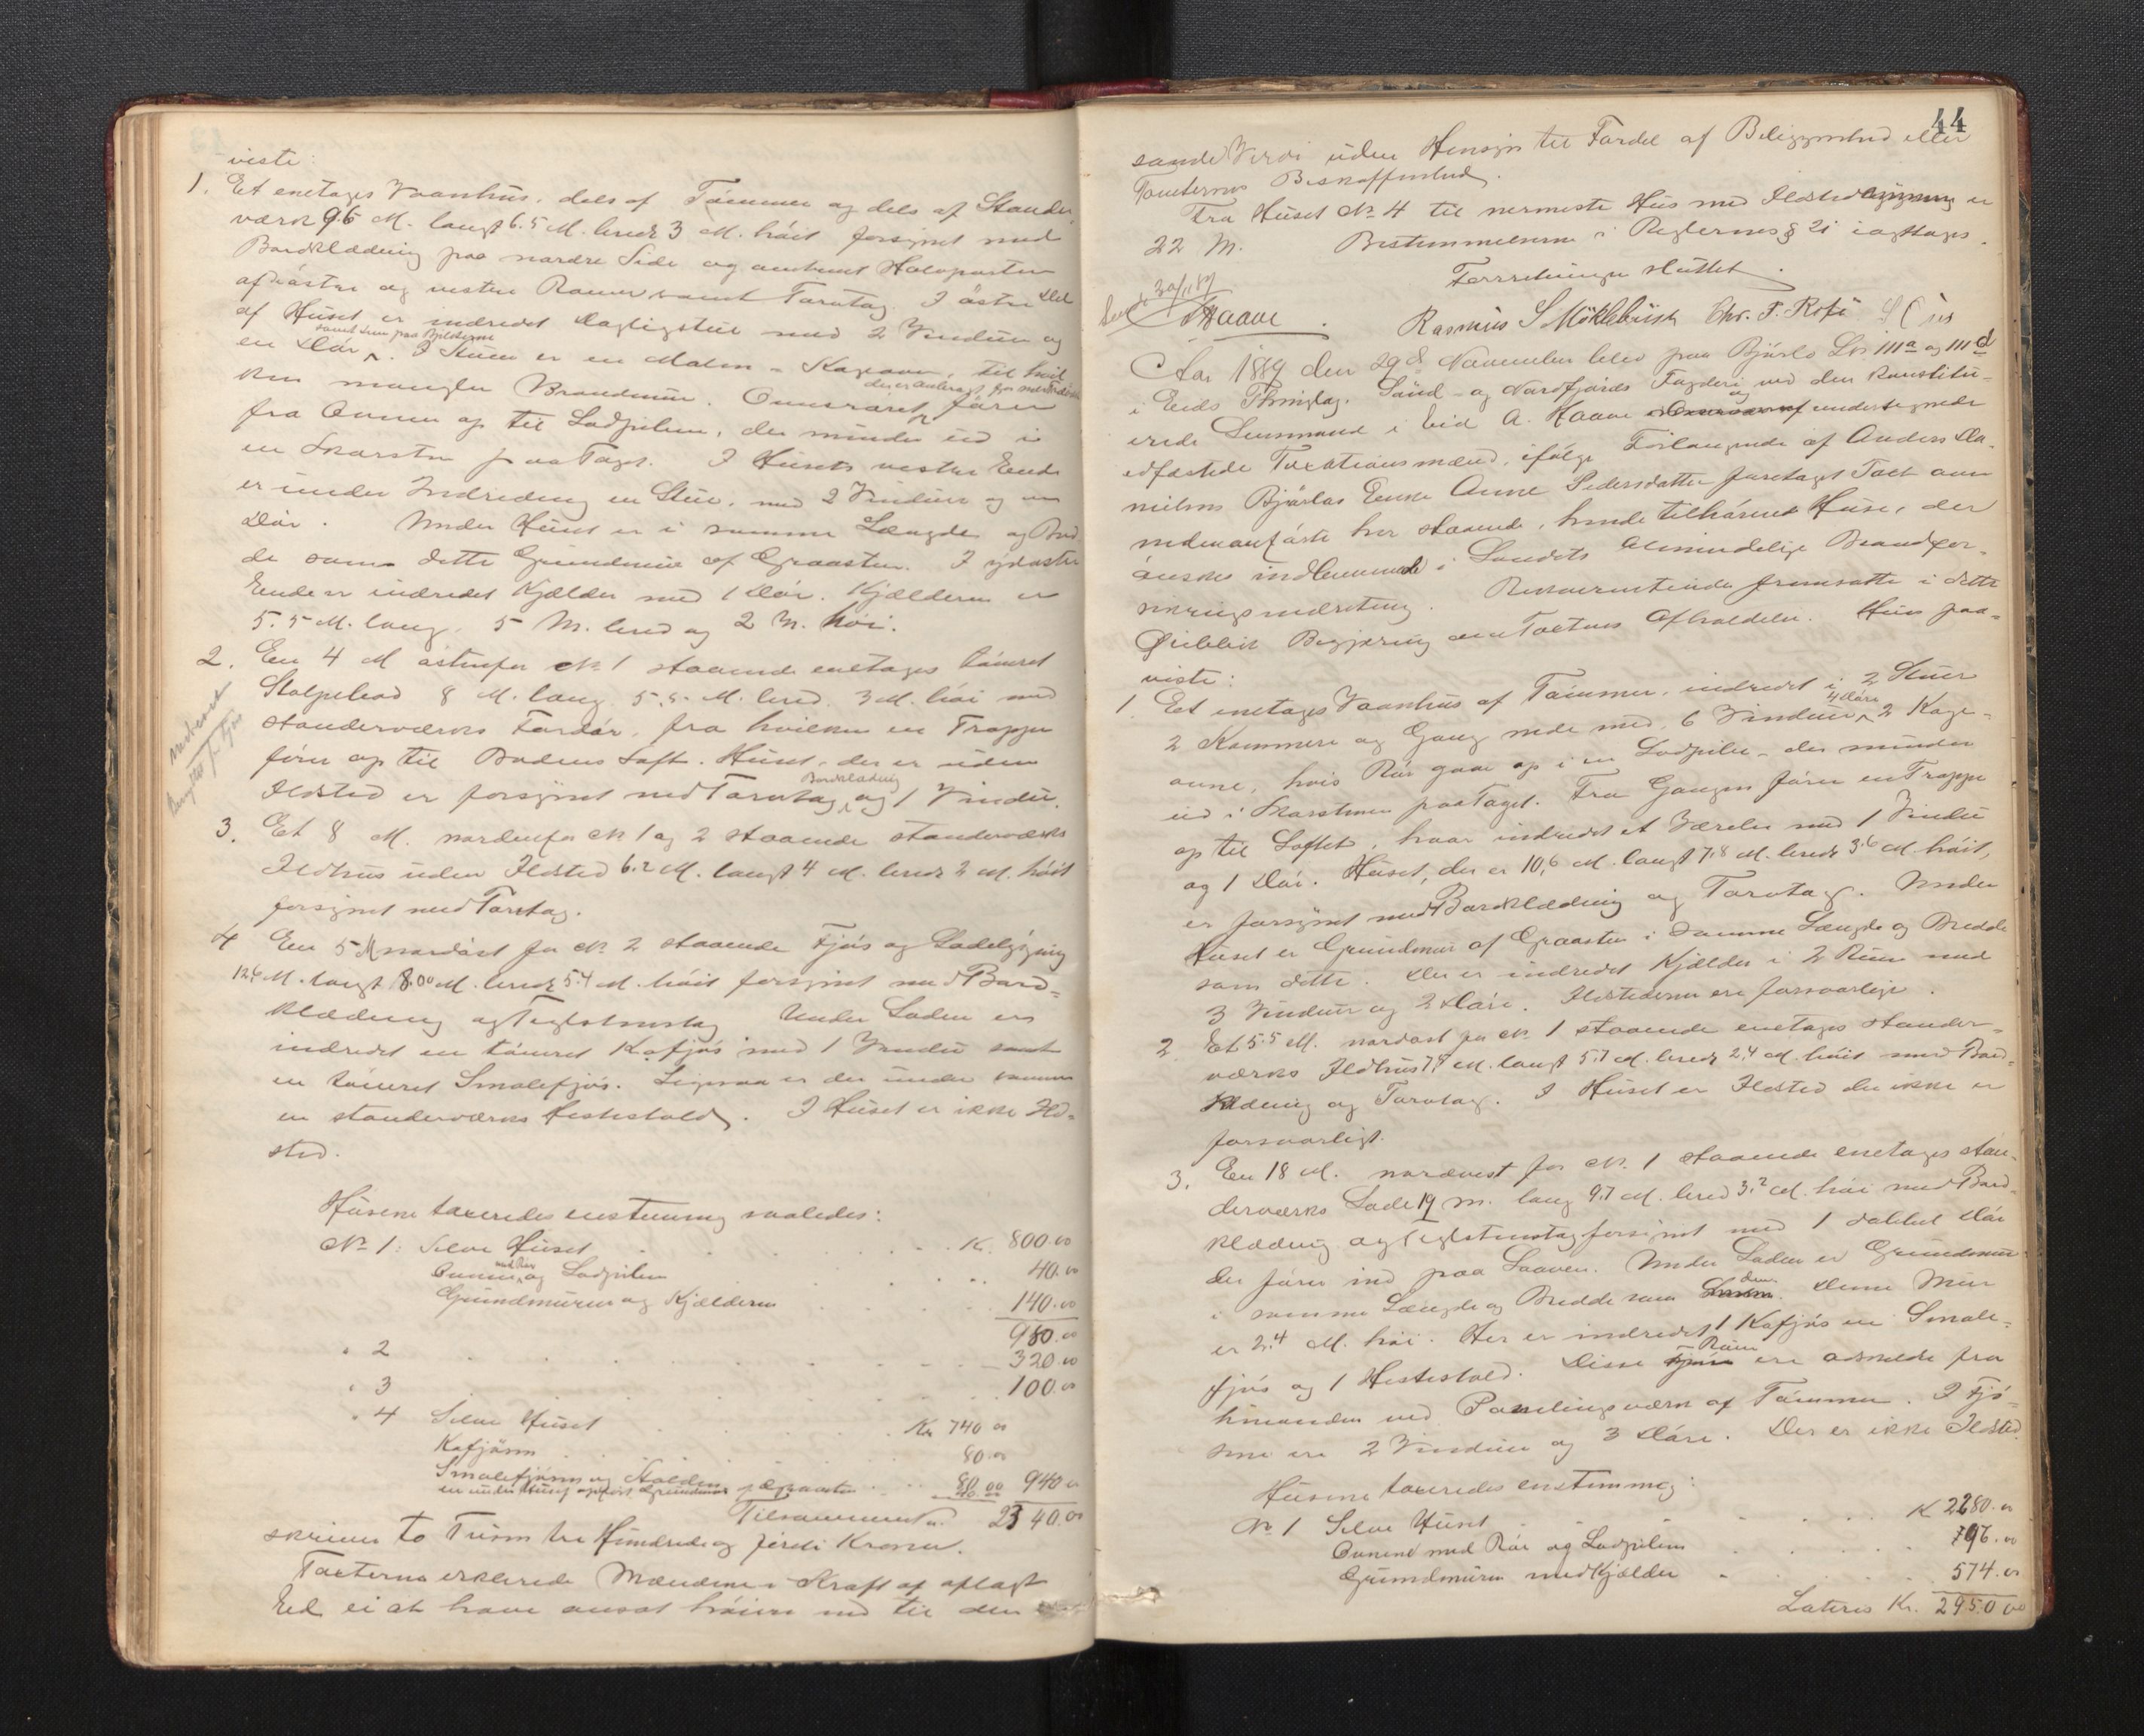 viste:
1. Et enetages Vaanhus, dels af Tømmer og dels af Stander-
værk 9.6 M. langt 6.5 M. bredt 3 M. høit forsynet med
Bordklædning paa nordre Side og omtrent Halvparten
af østre og vestre Røuver samt Torvtag. I østre Del
af Huset er indredet Dagligstue med 2 Vinduer og
samt Lem paa Bjelkerne
en Dør. I Stuen er en Malm-Kagoven, til hvil-
ken mangler Brandmur. Ovnsrøret, fører
fra Ovnen op til Lodpiben, der munder ud i
en Skorsten paa Taget. I Husets vestre Ende
er under Indredning en Stue, med 2 Vinduer og en
Dør. Under Huset er i samme Længde og Bred-
de som dette Grundmur af Graasten. I
Ende er indredet Kjælder med 1 Dør. Kjælderen er
5.5 M. lang, 5 M. bred og 2 M. høi.
2. En 4 M østenfor No 1 staaende enetages tømret
Stolpebod 8 M. lang 5.5 M. bred 3 M. høi med
standerværks Fordør, fra hvilken en Trappe
fører op til Bodens Loft. Huset, der er uden
Bordklædning
Ildsted er forsynet med Torvtag, og 1 Vindu.
3. Et 8 M. nordenfor No 1 og 2 staaende standerværks
Ildhus uden Ildsted 6.2 M. langt 4 M. bredt 2 M. høit
forsynet med Torvtag.
4 En 5 M nordøst for No 2 staaende Fjøs og Ladebygning
12.6 M. langt 8.00 M. bredt 5.4 M. høit forsynet med Bord-
klædning og Teglstenstag. Under Laden er
indredet en tømret Kofjøs med 1 Vindu samt
en tømret Smalefjøs. Ligesaa er der under samme
en standerværks Hestestald. I Huset er ikke Ild-
sted.
Husene taxeredes enstemmig saaledes:
No 1: Selve Huset Kr. 800.00
med Rør
Ovnen og Lodpiben 40.00
Grundmuren og Kjælderen 140.00
980.00
" 2 320.00
" 3 100.00
" 4 Selve Huset Kr 740 00
Kofjøsen 80.00
Smalefjøsen og Stalden 80.00 940 00
en under Huset opført Grundmur af Graasten 40.00
Tilsammen Kr. 2340.00
skriver to Tusen tre Hundrede og førti Kroner.
Taxterne erklærede Mændene i Kraft af aflagt
Ed ei at have ansat høiere end til den
44
sande Værdi uden Hensyn til Fordel af Beliggenhed eller
Tomternes Beskaffenhed.
Fra Huset No 4 til nermeste Hus med Ildstedbygning er
22 M. Bestemmelserne i Reglernes § 21 iagttages.
Forretningen sluttet.
30/11 89
AHaave. Rasmus S Möklebüst Chr. T. Rofe
Aar 1889 den 29de November blev paa Bjørlo Lbr. 111a og 111d
i Eids Thinglag, Sünd- og Nordfjords Fogderi ved den konstitu-
erede Lensmand i Eid A. Haave og undertegnede
edfæstede Taxationsmænd, ifølge Forlangende af Anders Da-
nielsens Bjørlos Enke Anne Pedersdatter foretaget Taxt over
nedenanførte her staaende, hende tilhørende Huse, der
ønskes indlemmede i Landets almindelige Brandfor-
sikringsindretning. Rekvirentinden fremsatte i dette
Øieblik Begjæring om Taxtens Afholdelse. Hun paa-
viste:
1. Et enetages Vaanhus af Tømmer, indredet i 2 Stuer
4 Døre
2 Kammere og Gang nede med 6 Vinduer, 2 Kage-
ovne, hvis Rør gaar op i en Lodpibe, der munder
ud i Skorstenen paa Taget. Fra Gangen fører en Trappe
op til Loftet, hvor indredet et Værelse med 1 Vindu
og 1 Dør. Huset, der er 10,6 M. langt 7.8 M. bredt 3.6 M. høit,
er forsynet med Bordklædning og Torvtag. Under
Huset er Grundmur af Graasten i samme Længde og Bredde
som dette. Der er indredet Kjælder i 2 Rum med
3 Vinduer og 2 Døre. Ildstederne ere forsvarlige.
2. Et 5.5 M. nordøst for No 1 staaende enetages stander-
værks Ildhus 7.8 M. langt 5.7 M. bredt 2.4 M. høit med Bord-
klædning og Torvtag. I Huset er Ildsted der ikke er
forsvarligt.
3. En 18 M. nordvest for No. 1 staaende enetages stan-
derværks Lade 19 M. lang 9.7 M. bred 3.2 M. høi med Bord-
klædning og Teglstenstag forsynet med 1 dobbel Dør
der fører ind paa Laaven. Under Laden er Grundmur
i samme Længde og Bredde som den. Denne Mur
er 2.4 M. høi. Her er indredet 1 Kofjøs en Smale-
Rum
fjøs og 1 Hestestald. Disse ere adskilte fra
hinanden ved Panelingsværk af Tømmer. I Fjø-
sene ere 2 Vinduer og 3 Døre. Der er ikke Ildsted.
Husene taxeredes enstemmig:
No 1 Selve Huset K 2280.00
Ovnene med Rør og Lodpiben 96.00
Grundmuren med Kjælder 574.00
Lateris Kr. 2950.00